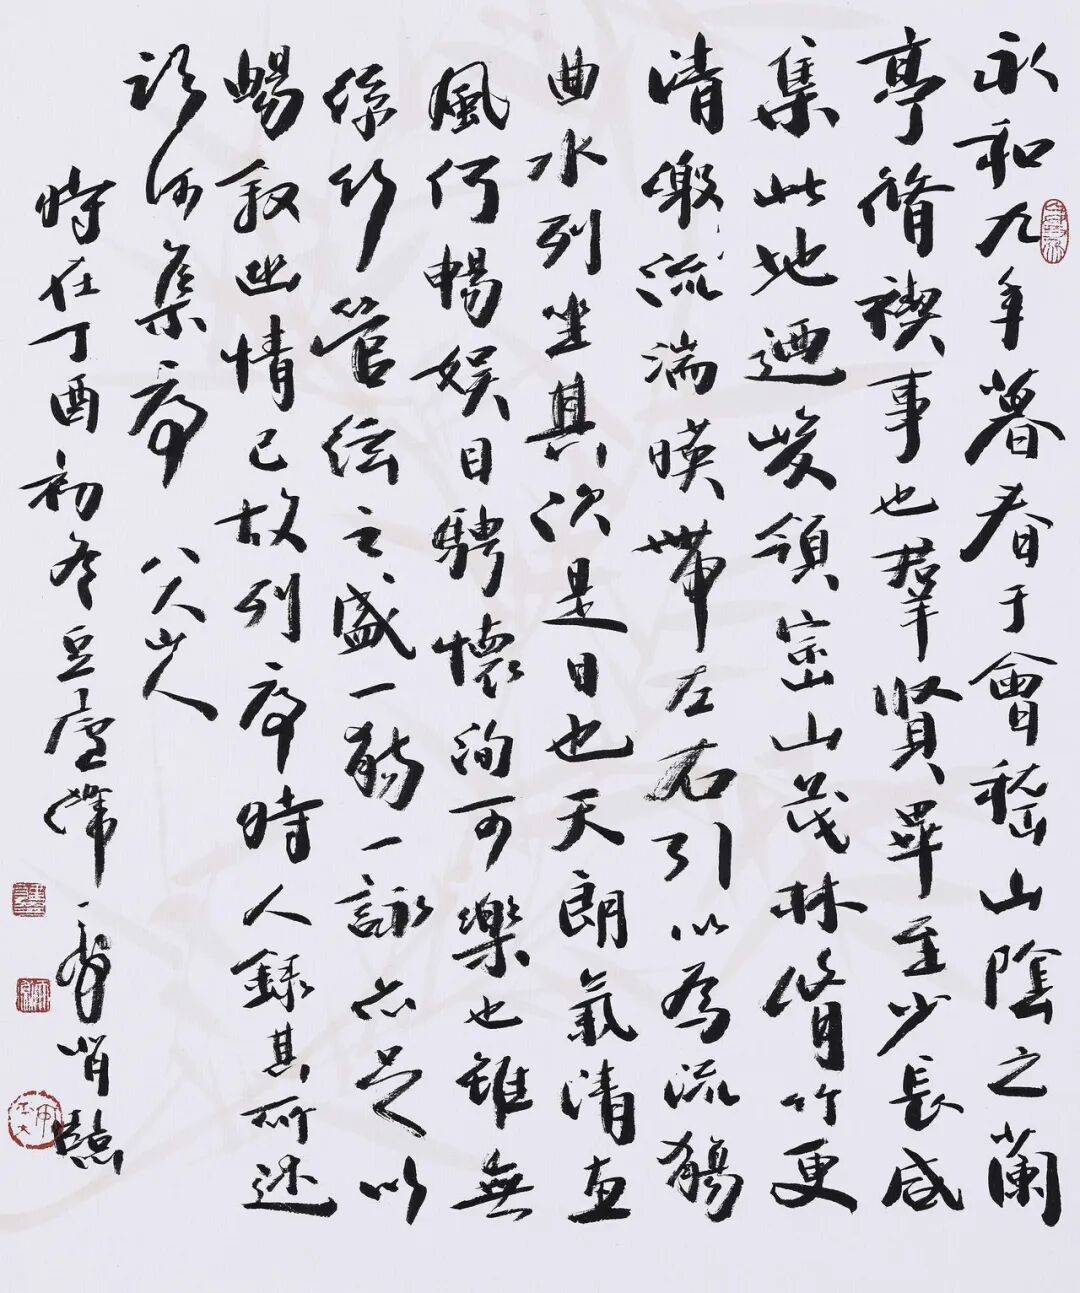 永和九年暮春于會稽山陰之蘭
亭脩禊事也羣賢畢至少長咸
集此地迺峻領崇山茂林脩竹更
清激流湍暎帶左右引以為流觴
曲水列坐其次是日也天朗氣清惠
風和暢娛目騁懷洵可樂也雖無
絲竹管絃之盛一觴一詠亦足以
暢敘幽情已故列序時人錄其所述
臨河集序 八大山人
時在丁酉初冬豆廬肖臨